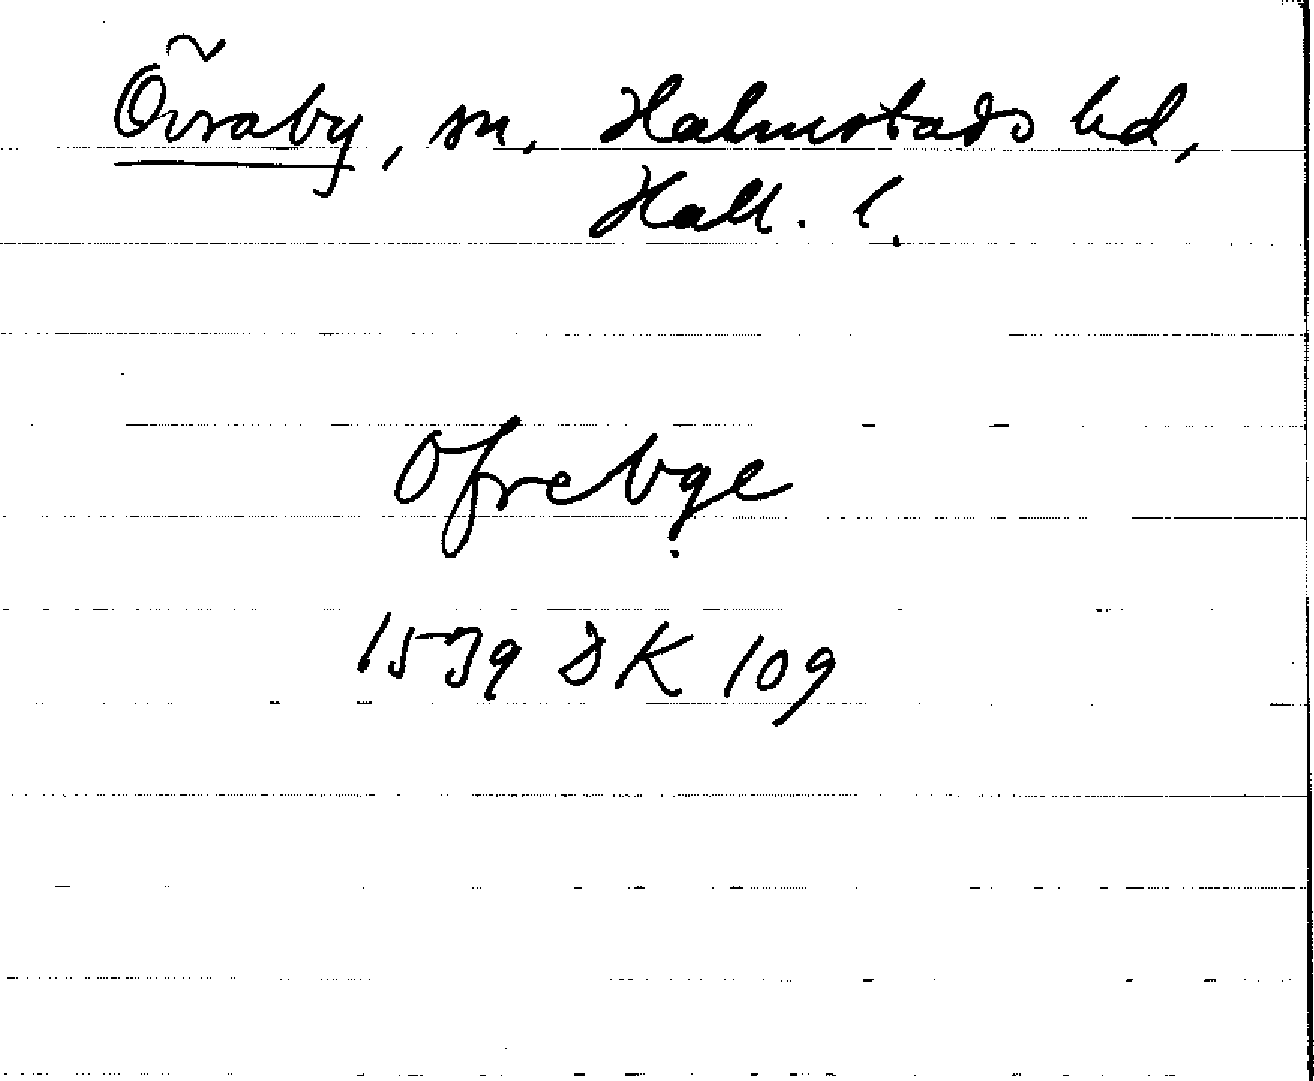 Övraby, sn, Halmstads hd,
Hall. l.
Ofrebge
1539 DK 109